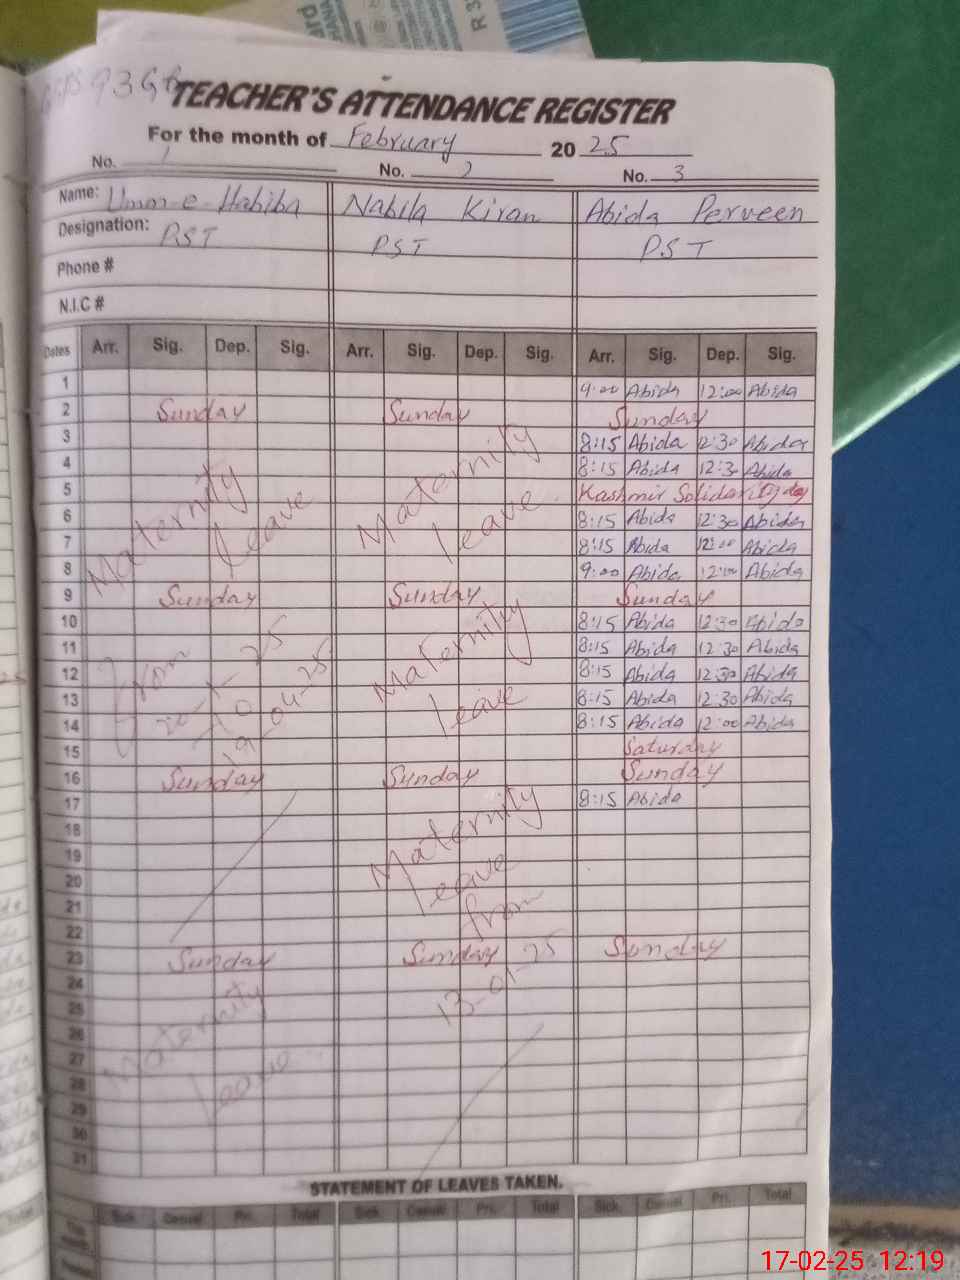 R3
TEACHER'S ATTENDANCE REGISTER
For the month of February 2025
No. 1 No. 2 No. 3
Name: Umm-e-Habiba Nabila Kiran Abida Perveen
Designation: PST PST PST
Phone #
N.I.C #
Dates Arr. Sig. Dep. Sig. Arr. Sig. Dep. Sig. Arr. Sig. Dep. Sig.
1 9:00 Abida 12:00 Abida
2 Sunday Sunday Sunday
3 8:15 Abida 12:30 Abida
4 8:15 Abida 12:30 Abida
5 Kashmir Solidarity day
6 8:15 Abida 12:30 Abida
7 8:15 Abida 12:00 Abida
8 9:00 Abida 12:00 Abida
Maternity leave Maternity leave
9 Sunday Sunday Sunday
10 8:15 Abida 12:30 Abida
11 8:15 Abida 12:30 Abida
12 8:15 Abida 12:30 Abida
13 8:15 Abida 12:30 Abida
14 8:15 Abida 12:00 Abida
From 20-1-25 To 19-04-25 Maternity leave
15 Saturday
16 Sunday Sunday Sunday
17 8:15 Abida
18
19
20
21
22
Maternity leave from
23 Sunday Sunday Sunday
24
25
13-01-25
26
27
28
Maternity leave
29
30
31
STATEMENT OF LEAVES TAKEN.
Sick. Casual Pri. Total Sick. Casual Pri. Total Sick. Casual Pri. Total
17-02-25 12:19